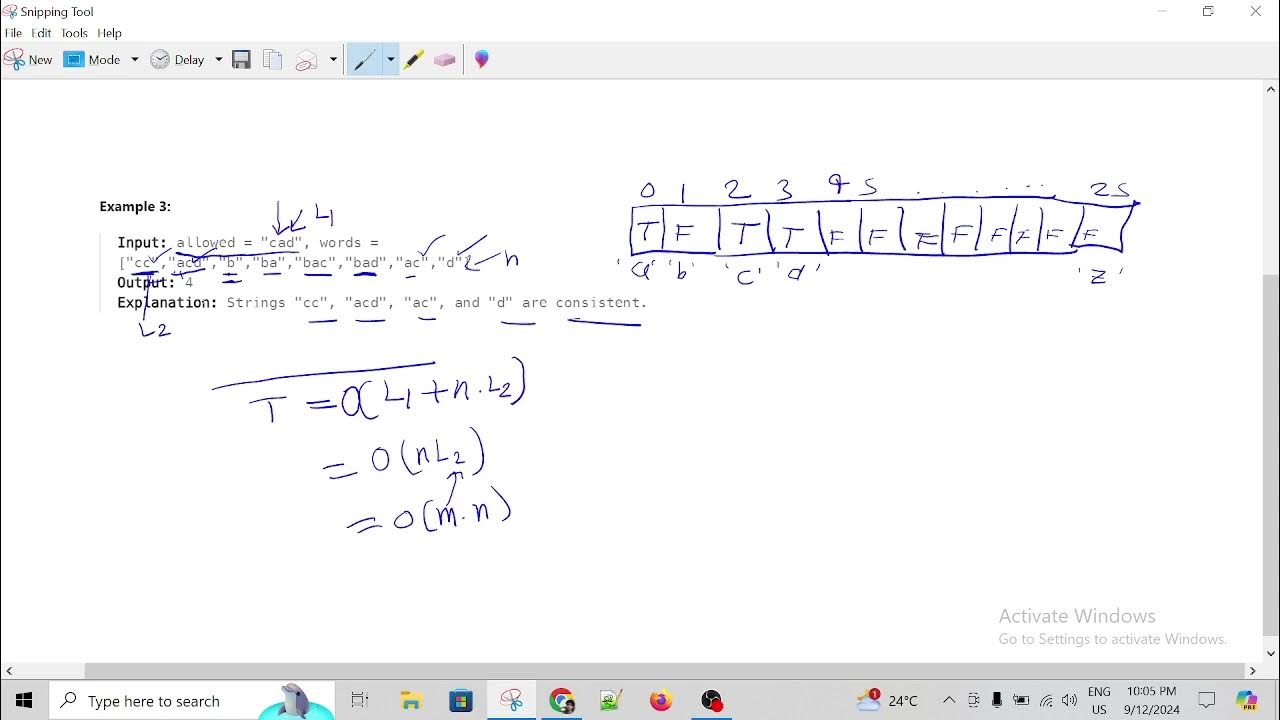 Snipping Tool
File Edit Tools Help
New Mode Delay
Example 3:
L1
Input: allowed = "cad", words =
["cc","acd","b","ba","bac","bad","ac","d"]
n
Output: 4
Explanation: Strings "cc", "acd", "ac", and "d" are consistent.
L2
0 1 2 3 4 5 . . . . . . . 25
T F T T F F F F F F F F
'a' 'b' 'c' 'd' 'z'
T = O(L1 + n.L2)
= O(nL2)
= O(m.n)
Activate Windows
Go to Settings to activate Windows.
Type here to search
1
24°C
ENG
US
10:05 PM
9/12/2024
PRE